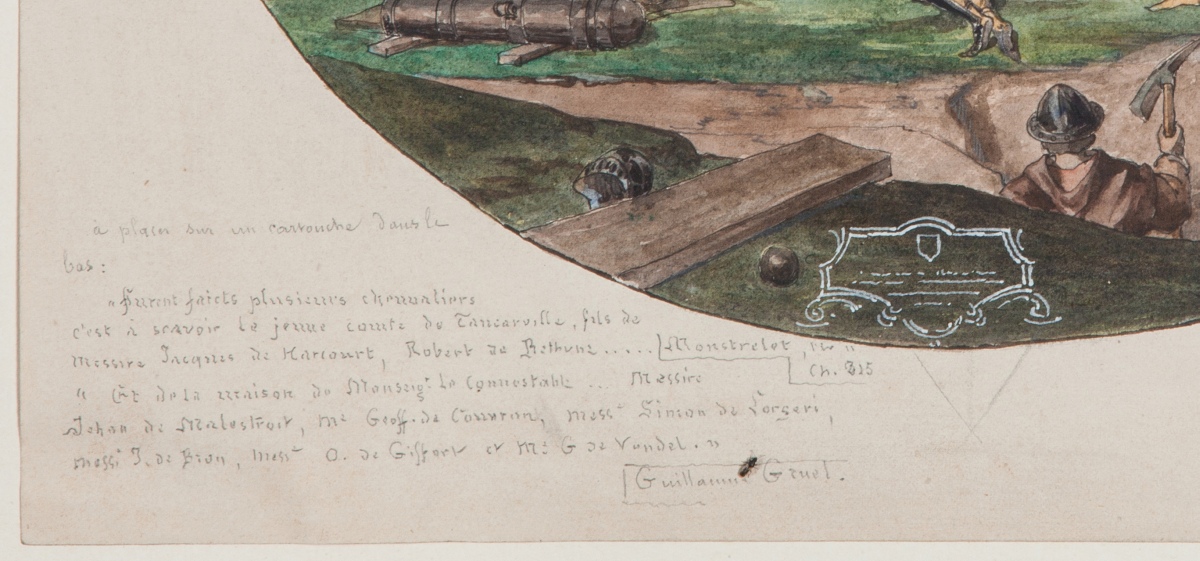 à placer sur un cartouche dans le
bas :
" Furent faicts plusieurs chevaliers
c'est à scavoir le jeune comte de Tancarville, fils de
Messire Jacques de Harcourt, Robert de Bethune ..... Monstrelet,
Ch. 215
" Et de la maison de Monseigr le Connestable ... Messire
Jehan de Malestroit, Mre Geoff. de Couvran, messre Simon de Lorgeri,
messre J. de Bron, messre O. de Giffart et Mre G de Vendel. "
Guillaume Gruel.